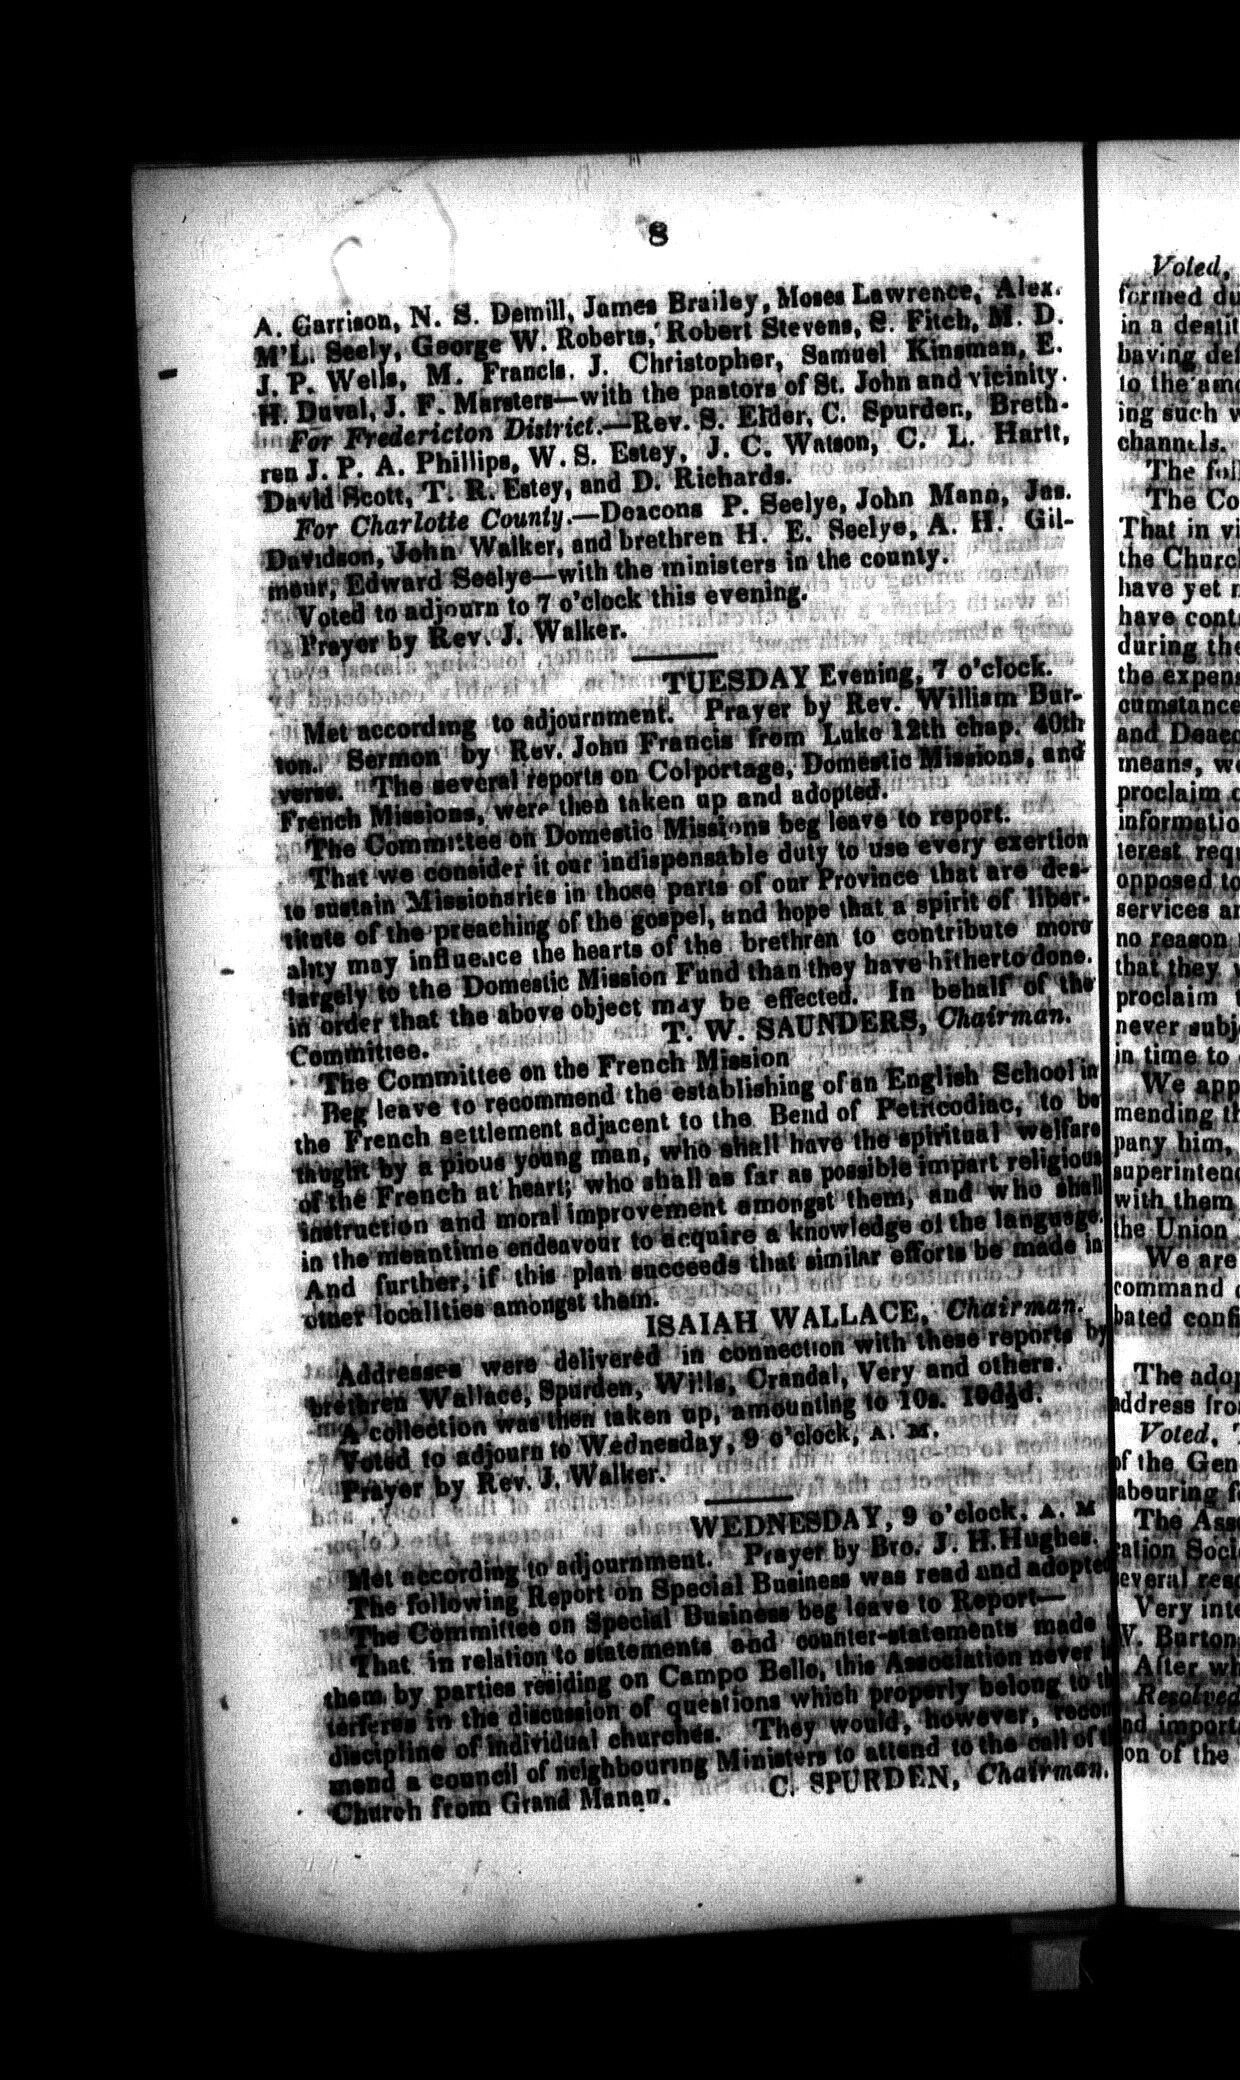 8
A. Garrison, N. S. Demill, James Brailey, Moses Lawrence, Alex.
M'L. Seely, George W. Roberts, Robert Stevens, S. Fitch, M. D.
J. P. Wells, M. Francis. J. Christopher, Samuel Kinsman, E.
H. Duval, J. F. Marsters—with the pastors of St. John and vicinity.
For Fredericton District.—Rev. S. Elder, C. Spurden, Breth-
ren J. P. A. Phillips, W. S. Estey, J. C. Watson, C. L. Hartt,
David Scott, T. R. Estey, and D. Richards.
For Charlotte County.—Deacons P. Seelye, John Mann, Jas.
Davidson, John Walker, and brethren H. E. Seelye, A. H. Gil-
mour, Edward Seelye—with the ministers in the county.
Voted to adjourn to 7 o'clock this evening.
Prayer by Rev. J. Walker.
TUESDAY Evening, 7 o'clock.
Met according to adjournment. Prayer by Rev. William Bur-
ton. Sermon by Rev. John Francis from Luke 12th chap. 40th
verse. The several reports on Colportage, Domestic Missions, and
French Missions, were then taken up and adopted.
The Committee on Domestic Missions beg leave to report.
That we consider it our indispensable duty to use every exertion
to sustain Missionaries in those parts of our Province that are des-
titute of the preaching of the gospel, and hope that a spirit of liber-
ality may influence the hearts of the brethren to contribute more
largely to the Domestic Mission Fund than they have hitherto done.
in order that the above object may be effected. In behalf of the
Committee. T. W. SAUNDERS, Chairman.
The Committee on the French Mission
Beg leave to recommend the establishing of an English School in
the French settlement adjacent to the Bend of Petitcodiac, to be
taught by a pious young man, who shall have the spiritual welfare
of the French at heart; who shall as far as possible impart religious
instruction and moral improvement amongst them, and who shall
in the meantime endeavour to acquire a knowledge of the language.
And further, if this plan succeeds that similar efforts be made in
other localities amongst them.
ISAIAH WALLACE, Chairman.
Addresses were delivered in connection with these reports by
brethren Wallace, Spurden, Wills, Crandal, Very and others.
A collection was then taken up, amounting to 10s. 10d½d.
Voted to adjourn to Wednesday, 9 o'clock, A. M.
Prayer by Rev. J. Walker.
WEDNESDAY, 9 o'clock, A. M
Met according to adjournment. Prayer by Bro. J. H. Hughes.
The following Report on Special Business was read and adopted
The Committee on Special Business beg leave to Report—
That in relation to statements and counter-statements made
them by parties residing on Campo Bello, this Association never
terferes in the discussion of questions which properly belong to
discipline of individual churches. They would, however, recom
mend a council of neighbouring Ministers to attend to the call of
Church from Grand Manan. C. SPURDEN, Chairman.
Voted,
formed du
in a destit
having def
to the amo
ing such w
channels.
The foll
The Co
That in vi
the Church
have yet
have cont
during the
the expens
cumstance
and Deaco
means, we
proclaim
informatio
terest requ
opposed to
services an
no reason
that they
proclaim
never subj
in time to
We app
mending th
pany him,
superintend
with them
the Union
We are
command
bated confi
The adop
address fro
Voted,
of the Gen
labouring f
The Asso
cation Socie
several reso
Very inte
W. Burton
After wh
Resolved
and importa
ion of the